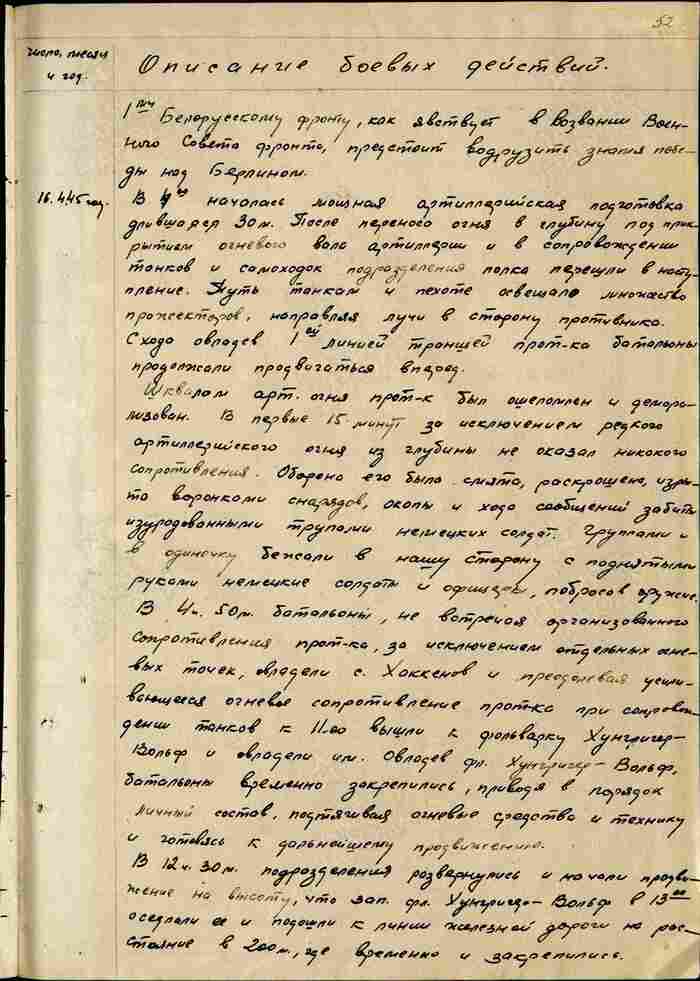 52
Число, месяц
и год.
Описание боевых действий.
1му Белорусскому фронту, как явствует в воззвании Воен-
ного Совета фронта, предстоит водрузить знамя побе-
ды над Берлином.
16.4.45 год.
В 4оо началась мощная артиллерийская подготовка
длившаяся 30м. После переноса огня в глубину под прик-
рытием огневого вала артиллерии и в сопровождении
танков и самоходок подразделения полка перешли в насту-
пление. Путь танкам и пехоте освещало множество
прожекторов, направляя лучи в сторону противника.
С хода овладев 1ой линией траншей прот-ка батальоны
продолжали продвигаться вперед.
Шквалом арт. огня прот-к был ошеломлен и демора-
лизован. В первые 15 минут за исключением редкого
артиллерийского огня из глубины не оказал никакого
сопротивления. Оборона его была смята, раскрошена, изры-
та воронками снарядов, окопы и хода сообщений забиты
изуродованными трупами немецких солдат. Группами и
в одиночку бежали в нашу сторону с поднятыми
руками немецкие солдаты и офицеры, побросав оружие.
В 4ч. 50м. батальоны, не встречая организованного
сопротивления прот-ка, за исключением отдельных огне-
вых точек, овладели с. Хоккенов и преодолевая усили-
вающееся огневое сопротивление прот-ка при сопровож-
дении танков к 11.00 вышли к фольварку Хунгригер-
Вольф и овладели им. Овладев фл. Хунгригер-Вольф,
батальоны временно закрепились, приводя в порядок
личный состав, подтягивая огневые средства и технику
и готовясь к дальнейшему продвижению.
В 12ч. 30м. подразделения развернулись и начали продви-
жение на высоту, что зап. фл. Хунгригер-Вольф в 13оо
оседлали ее и подошли к линии железной дороги на рас-
стояние в 200м., где временно и закрепились.